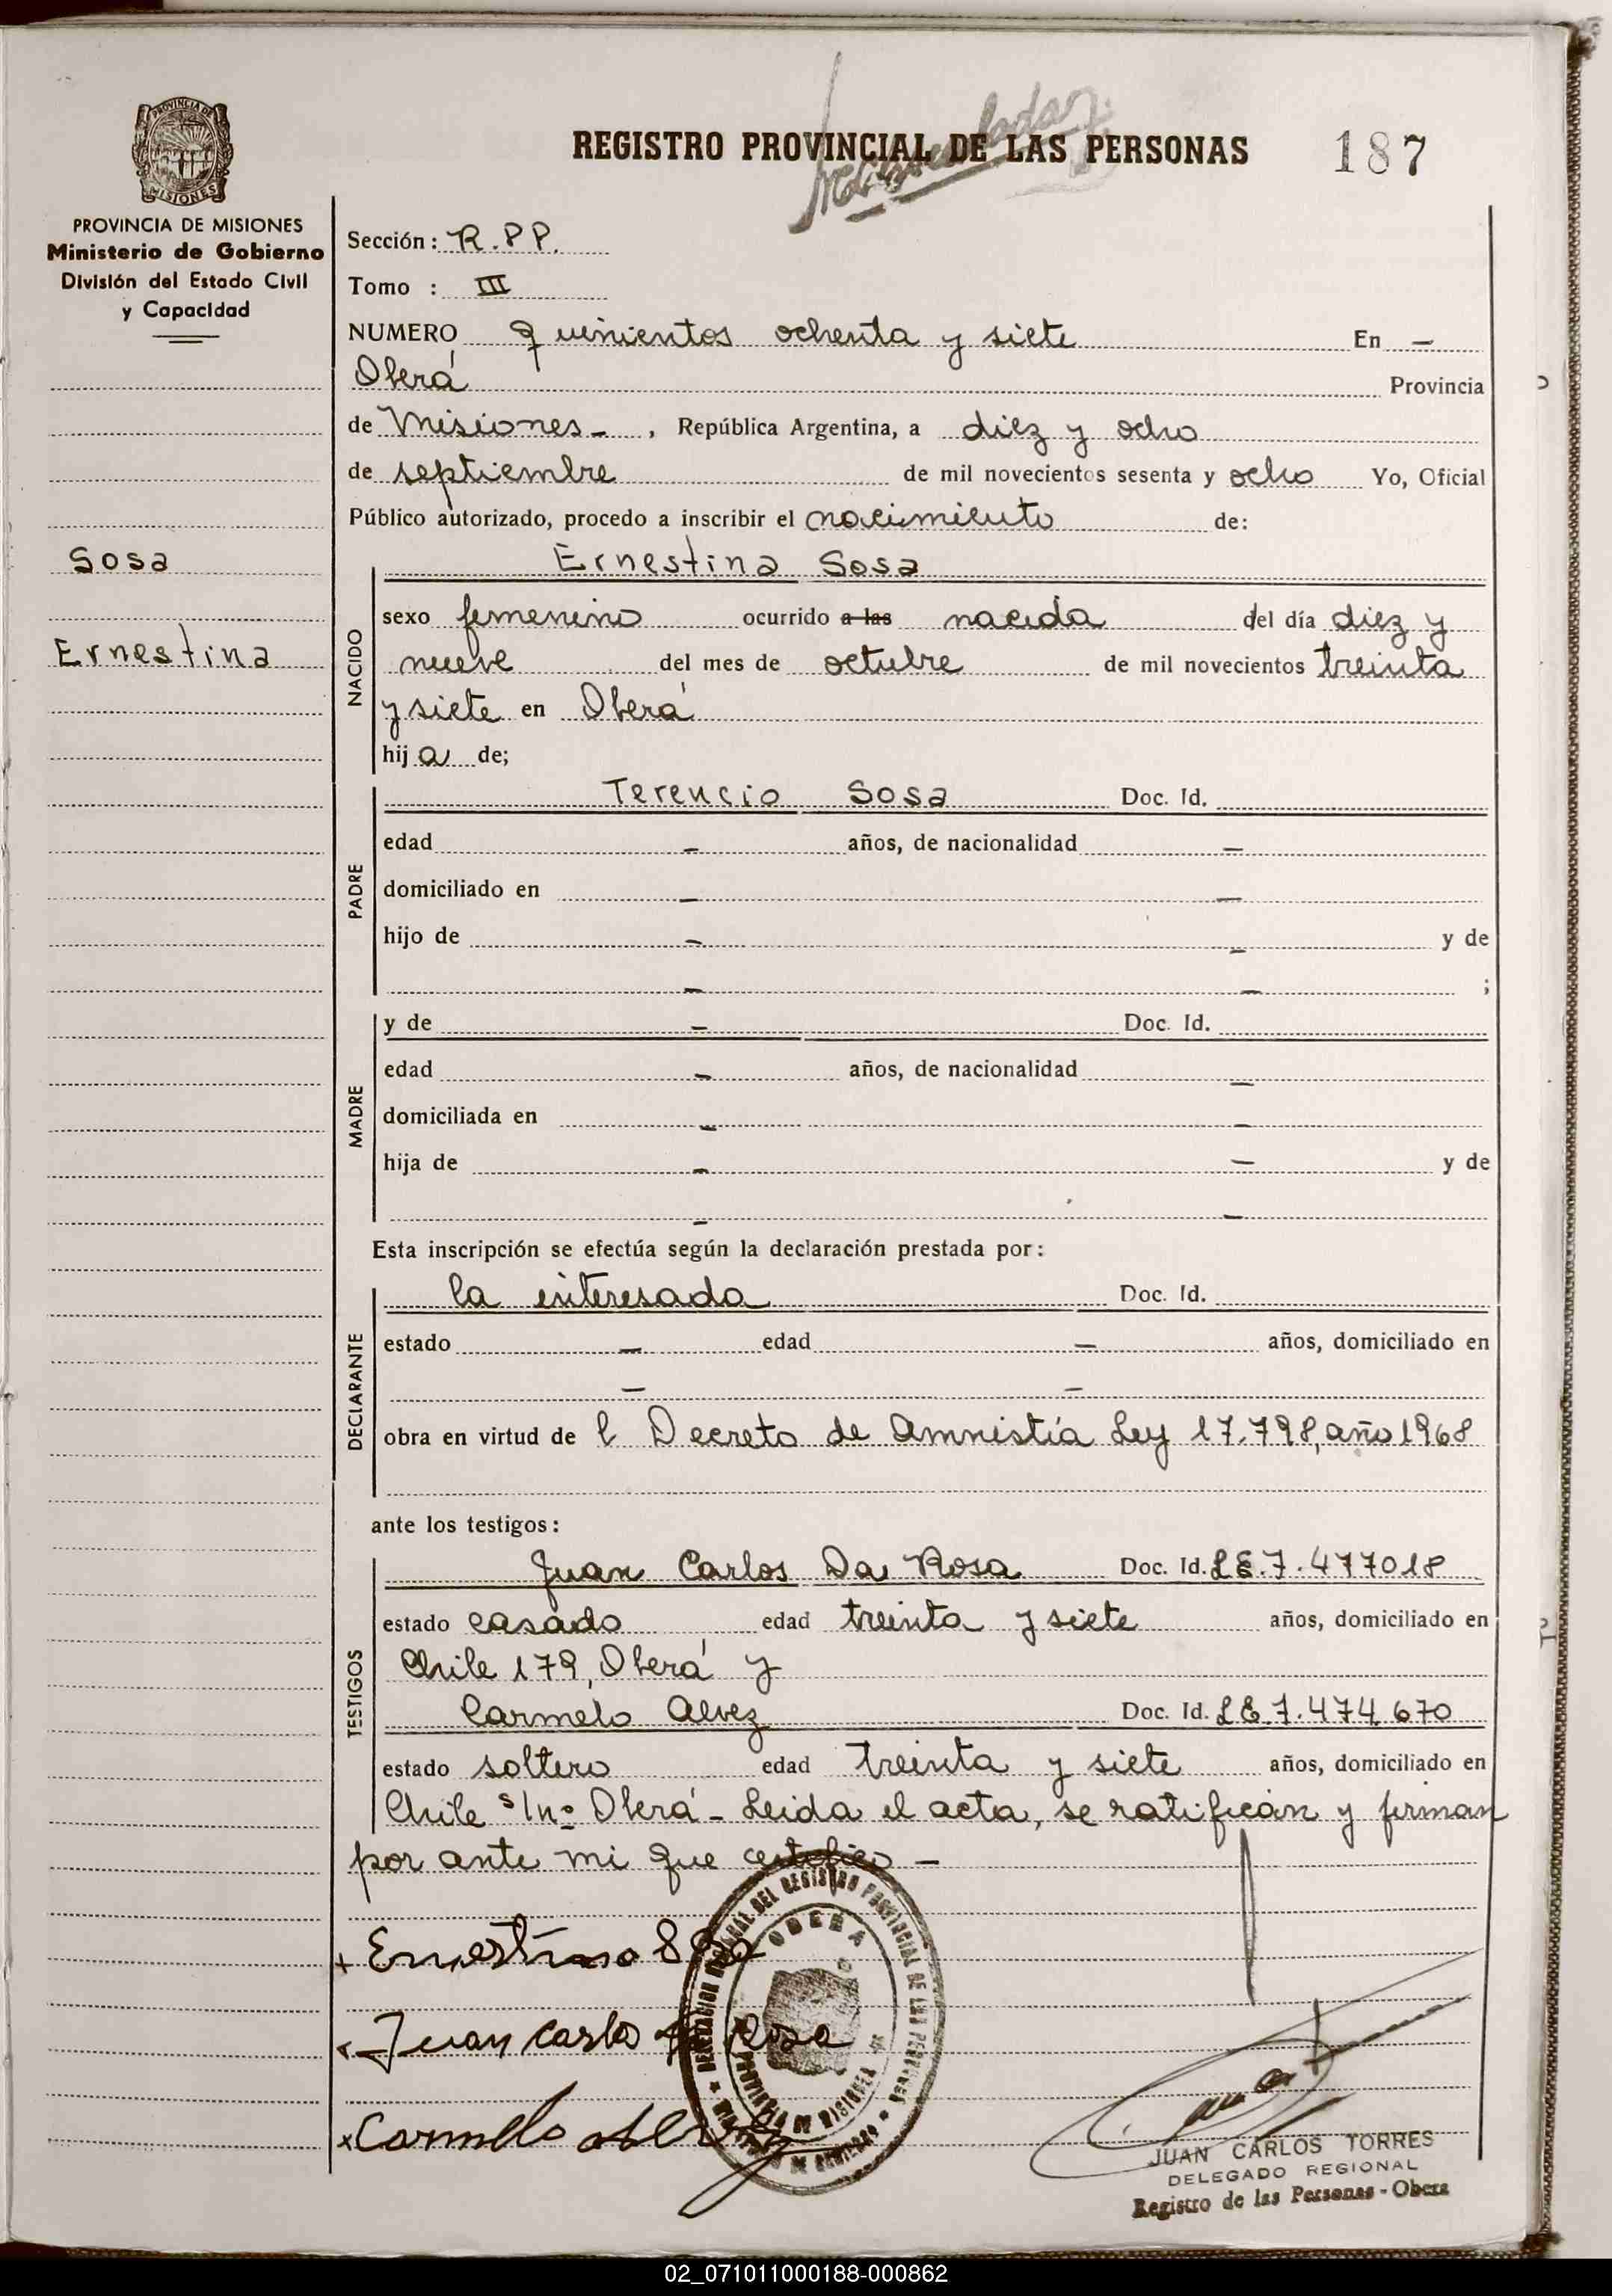 REGISTRO PROVINCIAL DE LAS PERSONAS 187
PROVINCIA DE
MISIONES
PROVINCIA DE MISIONES
Ministerio de Gobierno
División del Estado Civil
y Capacidad
Sosa
Ernestina
Sección: R.PP.
Tomo : III
NUMERO quinientos ochenta y siete En —
Oberá Provincia
de Misiones - , República Argentina, a diez y ocho
de septiembre de mil novecientos sesenta y ocho Yo, Oficial
Público autorizado, procedo a inscribir el nacimiento de:
NACIDO
Ernestina Sosa
sexo femenino ocurrido a las nacida del día diez y
nueve del mes de octubre de mil novecientos treinta
y siete en Oberá
hija de;
PADRE
Terencio Sosa Doc. Id.
edad — años, de nacionalidad —
domiciliado en — —
hijo de — — y de
— — ;
MADRE
y de — Doc. Id.
edad — años, de nacionalidad —
domiciliada en — —
hija de — — y de
— —
Esta inscripción se efectúa según la declaración prestada por:
DECLARANTE
la interesada Doc. Id.
estado — edad — años, domiciliado en
— —
obra en virtud de l Decreto de Amnistía Ley 17.798, año 1968
ante los testigos:
TESTIGOS
Juan Carlos Da Rosa Doc. Id. LE.7.477018
estado casado edad treinta y siete años, domiciliado en
Chile 179, Oberá y
Carmelo Alvez Doc. Id. LE.7.474.670
estado soltero edad treinta y siete años, domiciliado en
Chile s/nº Oberá - Leida el acta, se ratifican y firman
por ante mi que certifico —
+ Ernestina
x Juan Carlo Rosa
x Carmelo Alvez
OBERA
PROVINCIA DE MISIONES
JUAN CARLOS TORRES
DELEGADO REGIONAL
Registro de las Personas - Obera
02_071011000188-000862